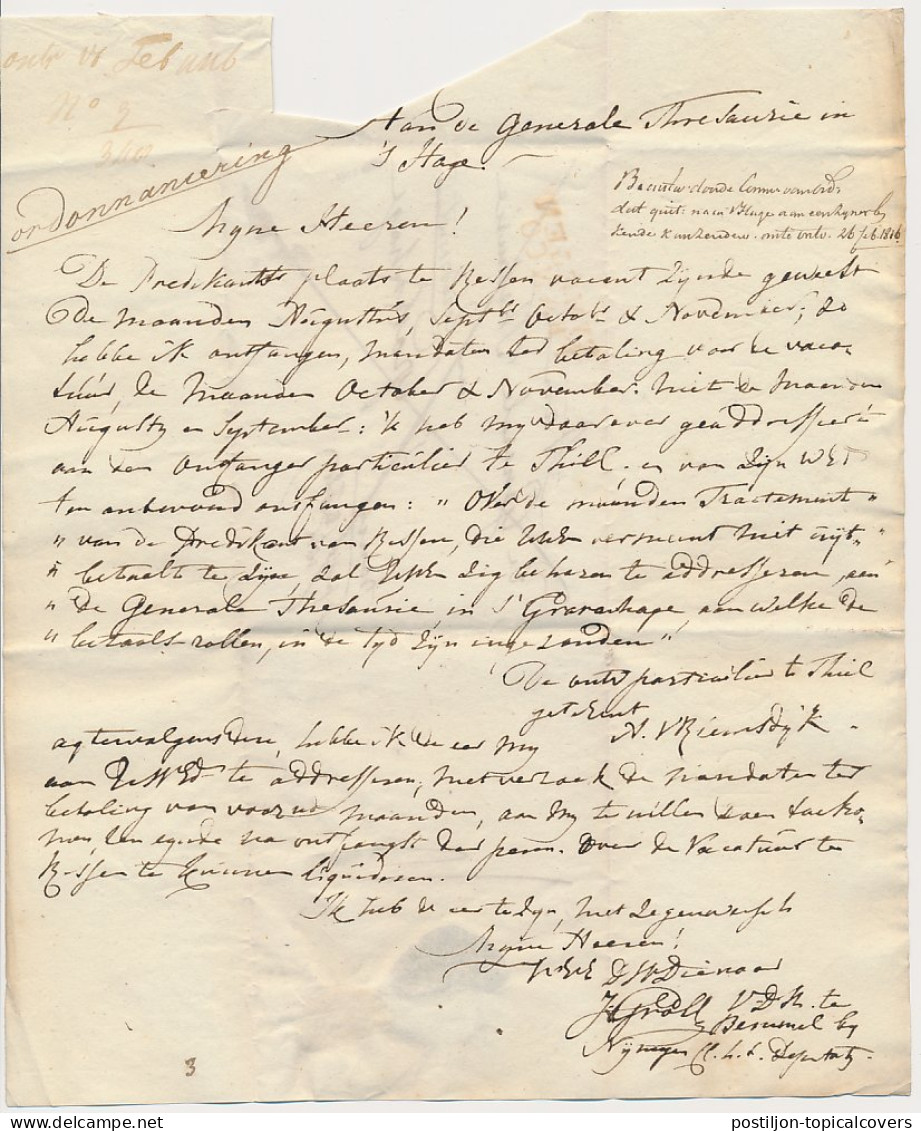 ontv Feb
No 2
Aan de Generale Thresaurie in
's Hage.
ordonnancering
dat quit: na in 'sHage aan een
26 feb. 1816
Myne Heeren!
De Predikants plaats te Ressen vacent zynde geweest
De maanden Augustus, Septbr Octobr & November; zo
hebbe ik ontfangen, mandaten tot betaling voor de vaca-
tuur, de maanden October & November. niet de maanden
Augustus en September: ik heb my daar over geaddresseerd
aan den ontfanger particulier te Thiel. en van zyn WEd
ten antwoord ontfangen: „ Over de maanden Tractement „
„ van de Predikant van Ressen, die UWE vermeent niet uyt- „
„ betaalt te zyn, zal UWE zig behoren te addresseren, aan
„ De Generale Thesaurie, in 's Gravenhage, aan welke de
„ betaals-rollen, in de tyd zyn ingezonden „
De ontvr particulier te Thiel
getekent
A. V Riemsdyk.
agtervolgens dese, hebbe ik de eer my
aan UWEd te addresseren, met verzoek de mandaten ter
betaling van voorn. maanden, aan my te willen doen toeko-
men, ten eynde na ontfangst der penn. over de Vacatuur te
Ressen te kunnen liquideren.
Ik heb de eer te zyn, met
Myne Heeren!
UWE DW Dienaar
V.D.M. te
Bemmel by
Nymegen
3
postiljon-topicalcovers